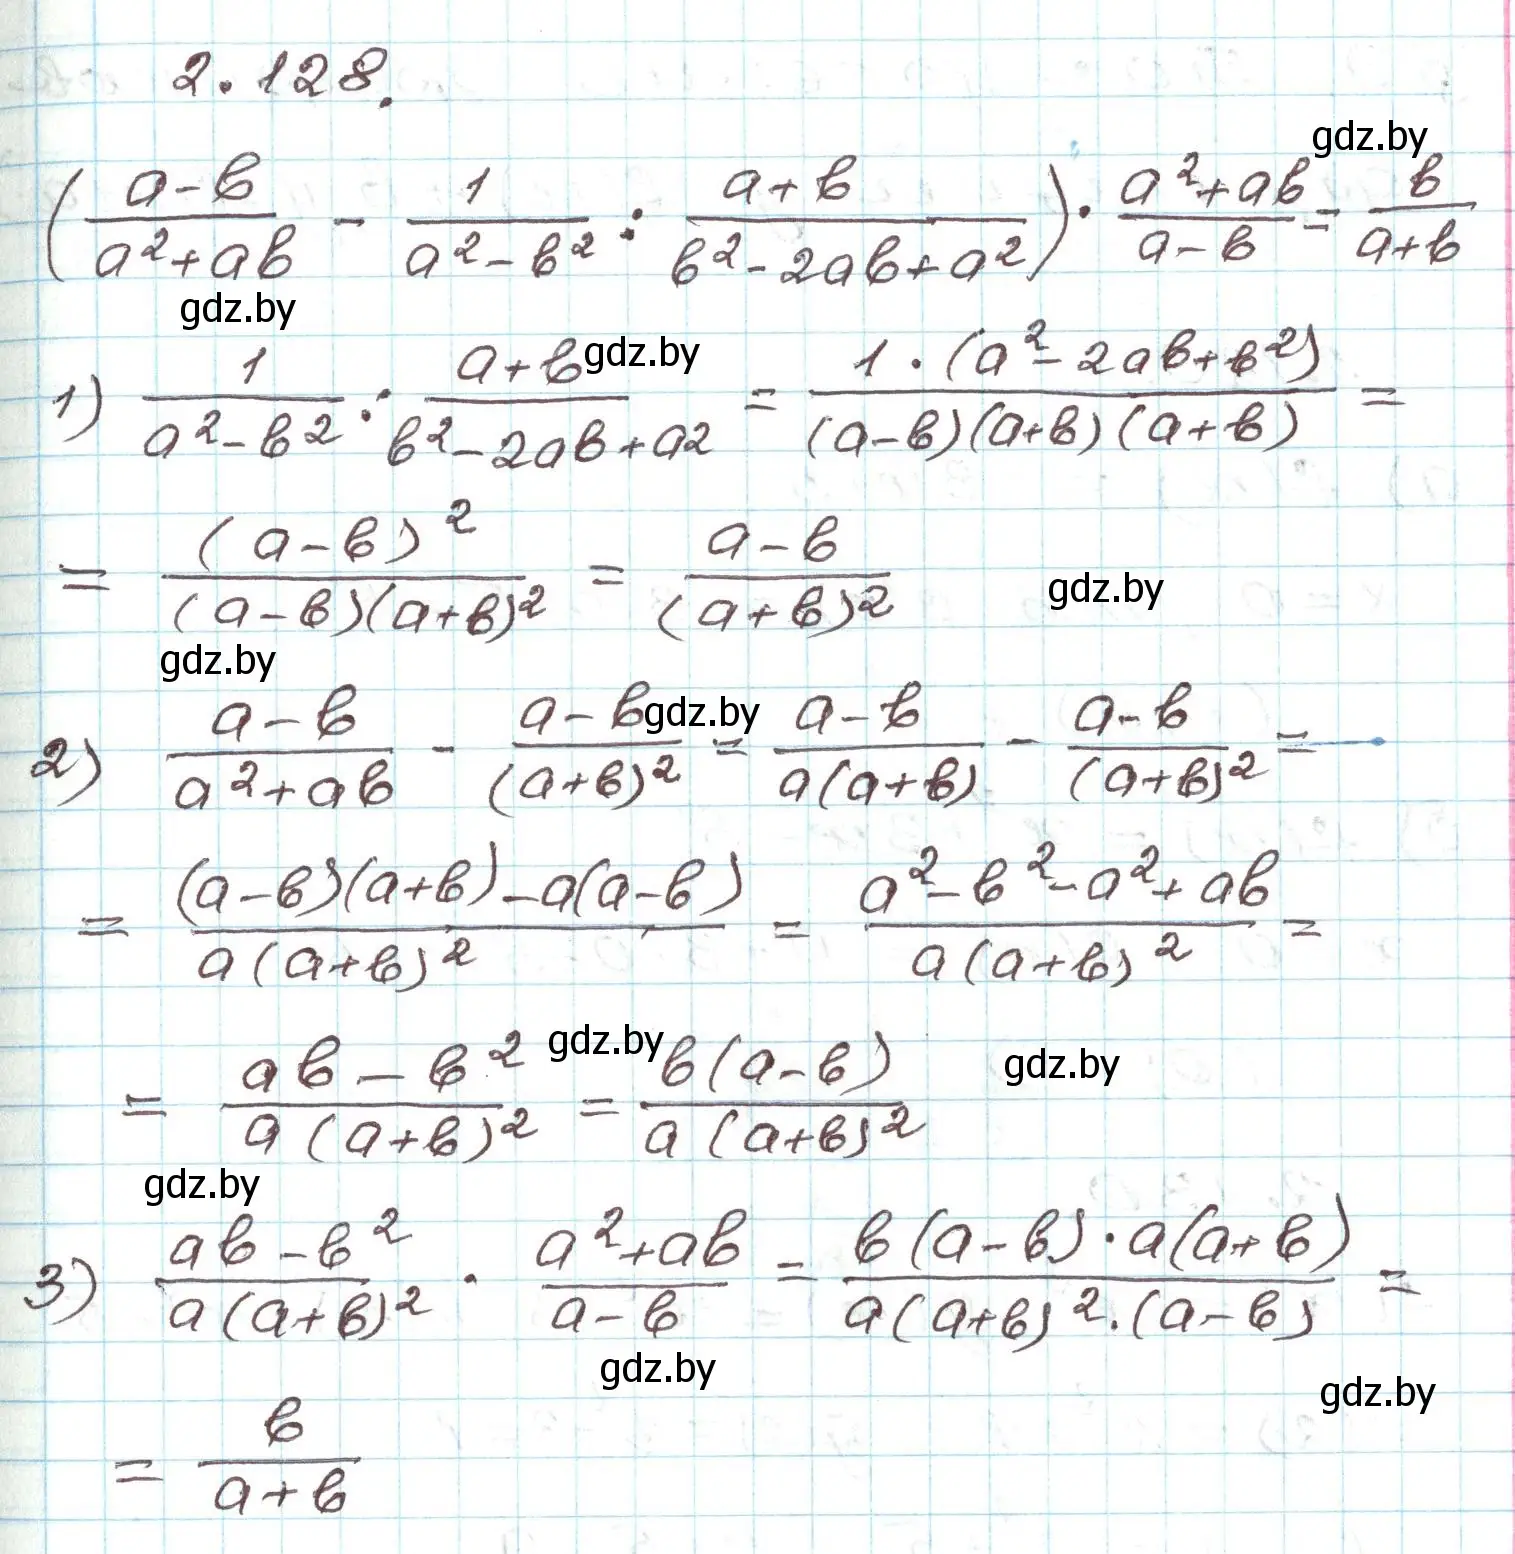 2.128.
gdz.by
(a-b/a²+ab - 1/a²-b² : a+b/b²-2ab+a²) · a²+ab/a-b = b/a+b
gdz.by
1) 1/a²-b² : a+b/b²-2ab+a2 = 1·(a²-2ab+b²)/(a-b)(a+b)(a+b) =
gdz.by
= (a-b)²/(a-b)(a+b)² = a-b/(a+b)²
gdz.by
gdz.by
2) a-b/a²+ab - a-b/(a+b)² = a-b/a(a+b) - a-b/(a+b)² =
gdz.by
= (a-b)(a+b)-a(a-b)/a(a+b)² = a²-b²-a²+ab/a(a+b)² =
= ab-b²/a(a+b)² = b(a-b)/a(a+b)²
gdz.by
gdz.by
gdz.by
3) ab-b²/a(a+b)² · a²+ab/a-b = b(a-b)·a(a+b)/a(a+b)²·(a-b) =
gdz.by
gdz.by
= b/a+b